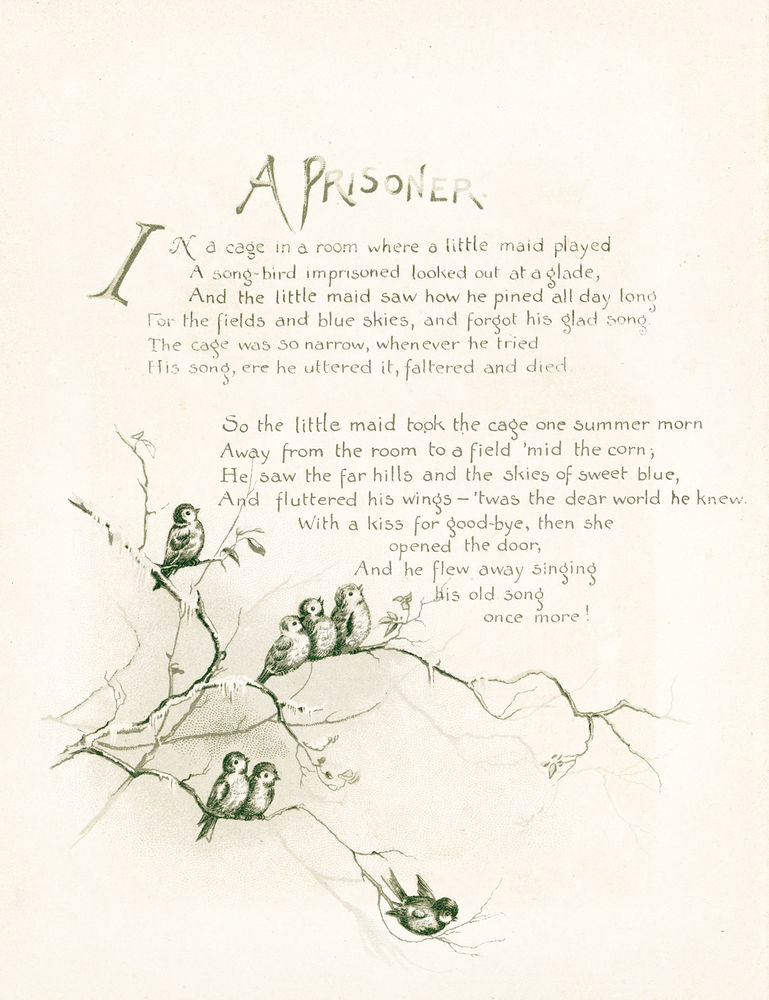 A PRISONER.
IN a cage in a room where a little maid played
A song-bird imprisoned looked out at a glade,
And the little maid saw how he pined all day long
For the fields and blue skies, and forgot his glad song.
The cage was so narrow, whenever he tried
His song, ere he uttered it, faltered and died.
So the little maid took the cage one summer morn
Away from the room to a field 'mid the corn;
He saw the far hills and the skies of sweet blue,
And fluttered his wings – 'twas the dear world he knew.
With a kiss for good-bye, then she
opened the door,
And he flew away singing
his old song
once more!